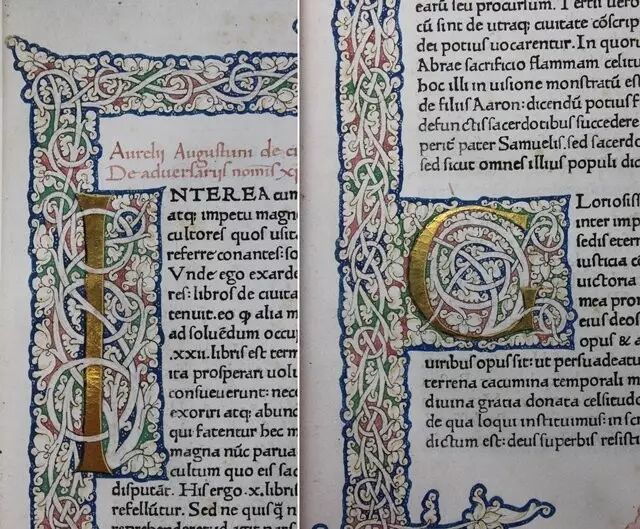 Aurelij Augustini de ci
De aduersarijs nomis xp
INTEREA cum
atq; impetu magn
cultores quos usita
referre conantes: so
Vnde ego exarde
res: libros de ciuita
tenuit. eo ꝙ alia m
ad soluēdum occu
.xxii. libris est term
ita prosperari uolu
consueuerunt: nec
exoriri atq; abund
qui fatentur hec m
magna nūc parua
cultum quo eis sac
disputāt. His ergo .x. libri
refellunt̄. Sed ne quisq̄ n
reprehenderet ad agit pars
earū seu procursum. Tertii uero
cū sint de utraq; ciuitate cōscrip
dei potius uocarentur. In quor
Abrae sacrificio flammam celitu
hoc illi in uisione monstratū est
de filiis Aaron: dicendū potius f
defunctis sacerdotibus succedere
perit pater Samuelis: sed sacerdo
sed sicut omnes illius populi dic
GLoriosiss
inter imp
sedis etern
iusticia cō
uictoria
mea pro
eius deos
opus & a
uiribus opus sit: ut persuadeatu
terrena cacumina temporali m
diuina gratia donata celsitudo
de qua loqui instituimus: in scri
dictum est: deus superbis resisti